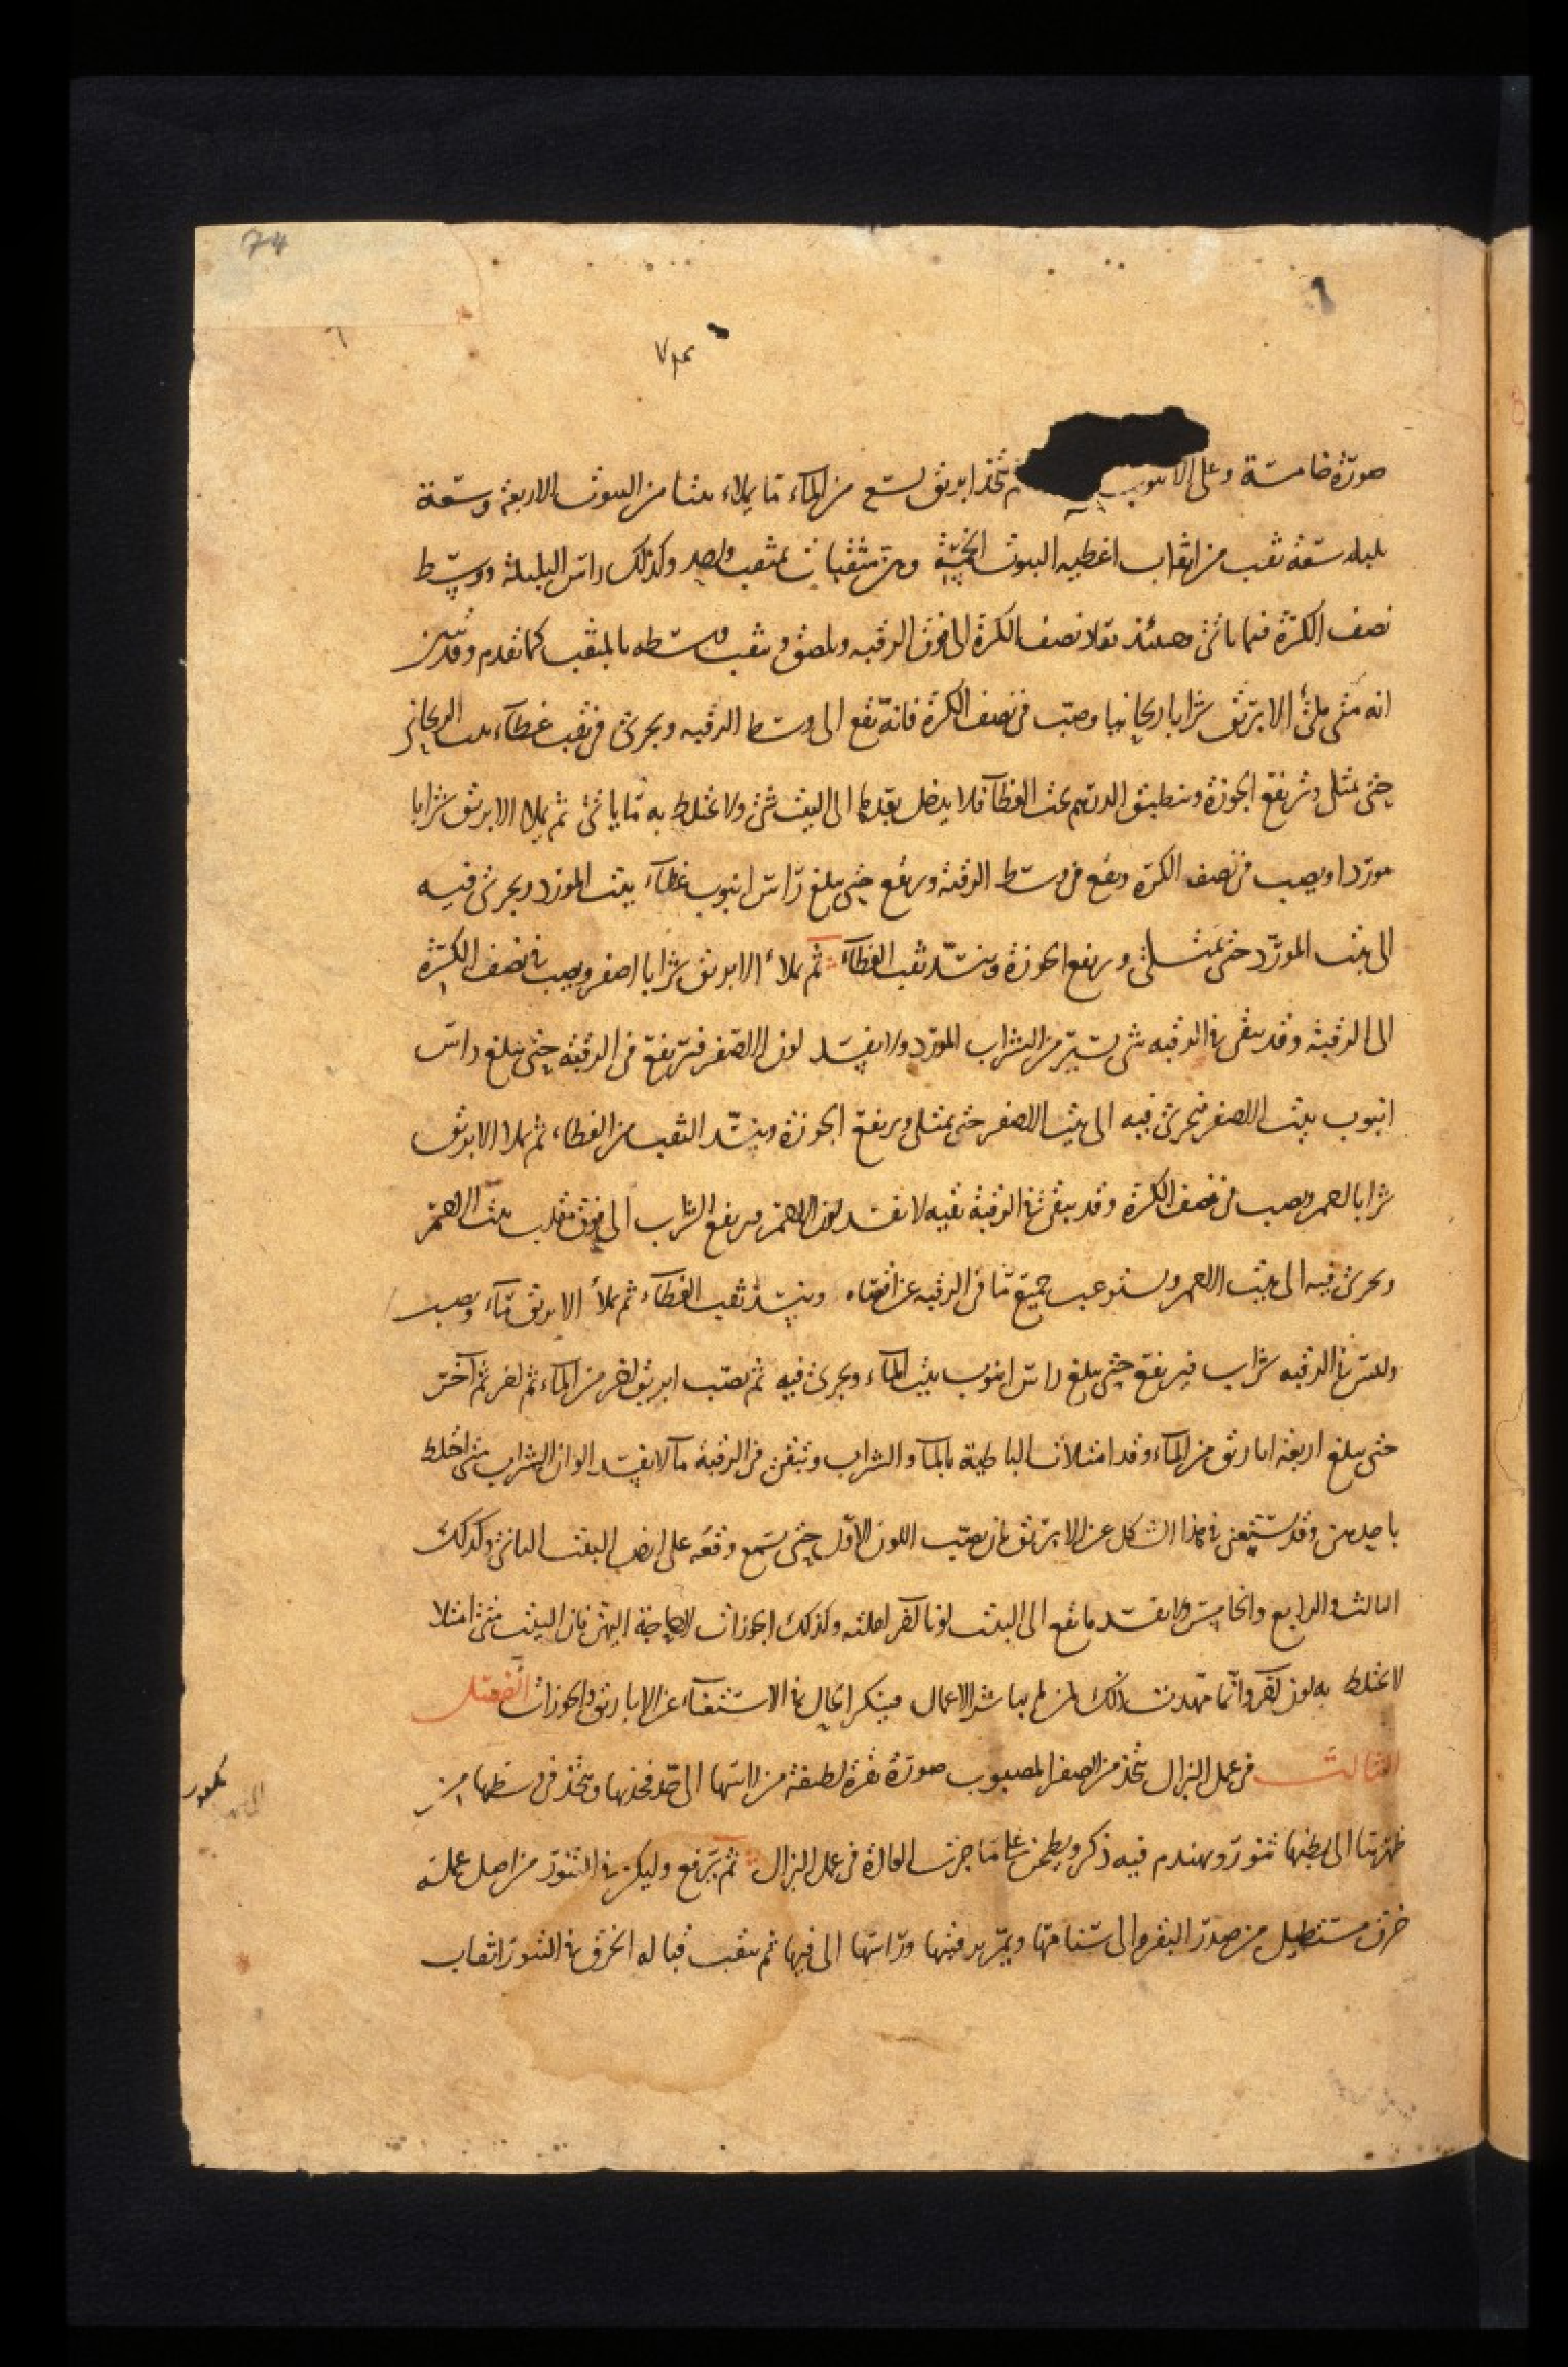 74
صورة خامسة وعلى الانبوب ثم تتخذ ابريق يسع من الماء ما يملاء بيتا من البيوت الاربعة وسعة
بلبله سعة ثقب من اثقاب اغطيه البيوت الخمسة وهن مثقبات بمثقب واحد وكذلك راس البلبلة ووسط
نصف الكرة فيما ياتى وحينئذ تعلا نصف الكرة الى فوق الرقبه ويلصق وثقب وسطه بالمثقب كما تقدم وقد تبين
انه متى ملئ الابريق شرابا ريحانيا وصب فى نصف الكرة فانه يقع الى وسط الرقبه ويجرى فى ثقب غطاء بيت الريحانى
حتى يمتلى وترتفع الجوزة وينطبق الدرهم تحت الغطآ فلا يدخل بعدها الى البيت شئ ولا يختلط به ما ياتى ثم يملا الابريق شرابا
موردا ويصب فى نصف الكرة ويقع فى وسط الرقبة ويرتفع حتى يبلغ راس انبوب غطاء بيت المورد ويجرى فيه
الى بيت المورد حتى يمتلى ويرتفع الجوزة وينسد ثقب الغطاء ثم يملاء الابريق شرابا اصفر ويصب فى نصف الكرة
الى الرقبة وقد يبقى فى الرقبه شى يسير من الشراب المورد ولا يفسد لون الاصفر فيرتفع فى الرقبه حتى يبلغ راس
انبوب بيت الاصفر فيجرى فيه الى بيت الاصفر حتى يمتلى ويرتفع الجوزة وينسد الثقب من الغطاء ثم يملا الابريق
شرابا احمر ويصب فى نصف الكرة وقد يبقى فى الرقبة بقيه لا تفسد لون الاحمر ويرتفع الشراب الى فوق ثقب بيت الاحمر
ويجرى فيه الى بيت الاحمر ويستوعب جميع ما فى الرقبه عن اقصاه وينسد ثقب الغطاء ثم يملا الابريق ماء ويصب
وليس فى الرقبه شراب فيرتفع حتى يبلغ راس انبوب بيت الماء ويجرى فيه ثم يصب ابريق اخر من الماء ثم اخر ثم آخر
حتى يبلغ اربعة اباريق من الماء وقد امتلات الباطية بالماء والشراب وتبقى فى الرقبة ما لا يفسد الوان الشراب متى اختلط
باحدهن وقد يستغنى فى هذا الشكل عن الابريق بان يصب اللون الاول حتى يسمع وقعه على ارض البيت الثانى وكذلك
الثالث والرابع والخامس ولا يفسد ما يقع الى البيت لونا آخر لقلته وكذلك الجوزات لا حاجة اليهن فان البيت متى امتلا
لا يختلط به لون آخر وانما مهدت ذلك لمن لم يباشر الاعمال فينكر الحال فى الاستغناء عن الاباريق والجوزات الفصل
الثالث فى عمل البزال يتخذ من الصفر المصبوب صورة بقرة لطيفة من راسها الى حد فخذيها ويتخذ فى وسطها من
ظهرها الى بطنها تنور ويهندم فيه ذكر ويطحن على ما جرت العادة فى عمل البزال ثم يرفع وليكن فى التنور من اصل عمله
خرق مستطيل من صدر البقرة الى سنامها ويمر برقبتها وراسها الى فيها ثم يثقب قباله الخرق فى التنور اثقاب